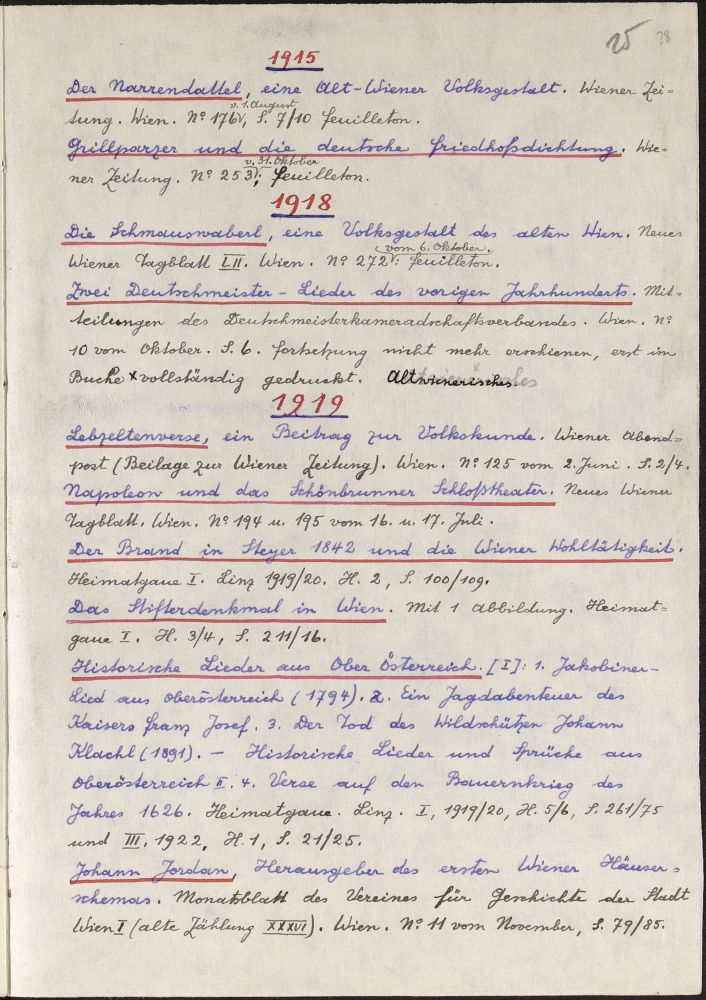 25 28
1915
Der Narrendattel, eine Alt-Wiener Volksgestalt. Wiener Zei=
v. 1. August
tung. Wien. Nº 176, S. 7/10 Feuilleton.
Grillparzer und die deutsche Friedhofsdichtung. Wie=
v. 31. Oktober
ner Zeitung. Nº 253; Feuilleton.
1918
Die Schmauswaberl, eine Volksgestalt des alten Wien. Neues
(vom 6. Oktober.
Wiener Tagblatt LII. Wien. Nº 272: Feuilleton.
Zwei Deutschmeister-Lieder des vorigen Jahrhunderts. Mit=
teilungen des Deutschmeisterkameradschaftsverbandes. Wien. Nº
10 vom Oktober. S. 6. Fortsetzung nicht mehr erschienen, erst im
Buche x vollständig gedruckt. Altwienerisches
1919
Lebzeltenverse, ein Beitrag zur Volkskunde. Wiener Abend=
post (Beilage zur Wiener Zeitung). Wien. Nº 125 vom 2. Juni. S. 2/4.
Napoleon und das Schönbrunner Schloßtheater. Neues Wiener
Tagblatt. Wien. Nº 194 u. 195 vom 16. u. 17. Juli.
Der Brand in Steyer 1842 und die Wiener Wohltätigkeit.
Heimatgaue I. Linz 1919/20. H. 2, S. 100/109.
Das Stifterdenkmal in Wien. Mit 1 Abbildung. Heimat=
gaue I. H. 3/4, S. 211/16.
Historische Lieder aus Ober Österreich. [I]: 1. Jakobiner-
Lied aus Oberösterreich (1794). 2. Ein Jagdabenteuer des
Kaisers Franz Josef. 3. Der Tod des Wildschützen Johann
Klachl (1891). – Historische Lieder und Sprüche aus
Oberösterreich II. 4. Verse auf den Bauernkrieg des
Jahres 1626. Heimatgaue. Linz. I, 1919/20, H. 5/6, S. 261/75
und III. 1922, H. 1, S. 21/25.
Johann Jordan, Herausgeber des ersten Wiener Häuser=
schemas. Monatsblatt des Vereines für Geschichte der Stadt
Wien I (alte Zählung XXXVI). Wien. Nº 11 vom November, S. 79/85.